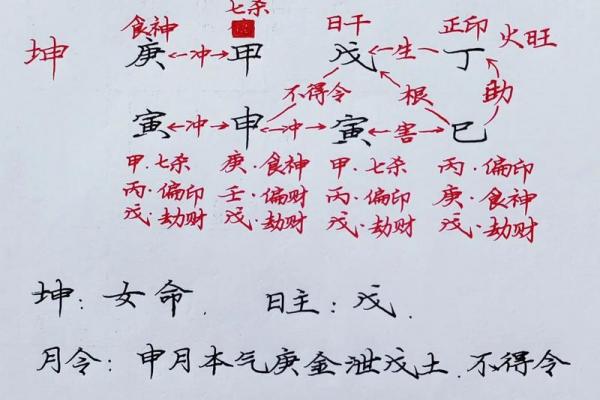 七杀
食神 日干 正印 火旺
坤 庚←冲→甲 戊←生一丁
不得令 根 助
寅←冲→申←冲→寅←害→巳
甲·七杀 庚·食神 甲·七杀 丙·偏印
丙·偏印 壬·偏财 丙·偏印 庚·食神
戊·劫财 戊·劫财 戊·劫财 戊·劫财
坤:女命. 日主:戊.
月令:申月本气庚金泄戊土.不得令